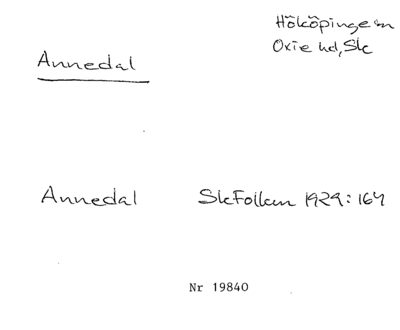 Hököpinge sn
Oxie hd, Sk
Annedal
Annedal SkFolkm 1929:164
Nr 19840